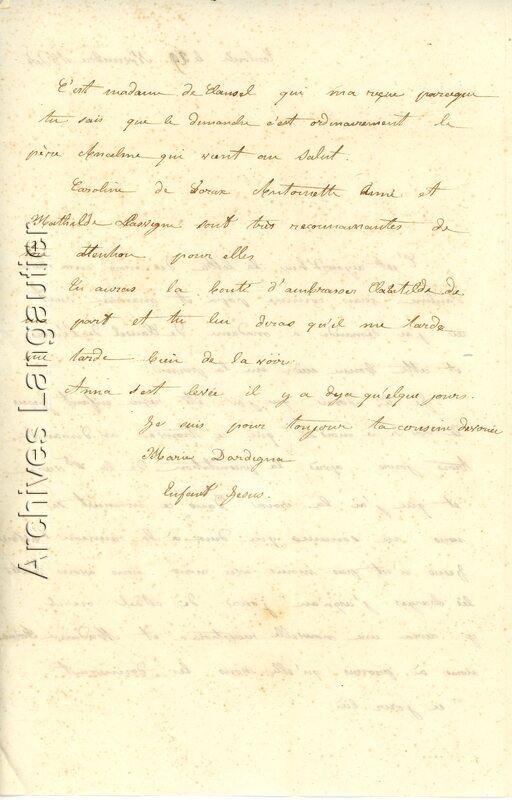 C'est madame de Clausel qui m'a reçue parceque
tu sais que le dimanche c'est ordinairement le
père Anselme qui vient au salut.
Caroline de Antoinette Aimé et
Mathilde Lassigne sont très reconnaissantes de
attention pour elles
Tu auras la bonté d'ambrasser Clautilde de
part et tu lui diras qu'il me tarde
me tarde bien de la voir.
Anna s'est levée il y a deja quelque jours.
Je suis pour toujour ta cousine devouée
Marie Dardigna
Enfant Jesus.
Archives Langautier